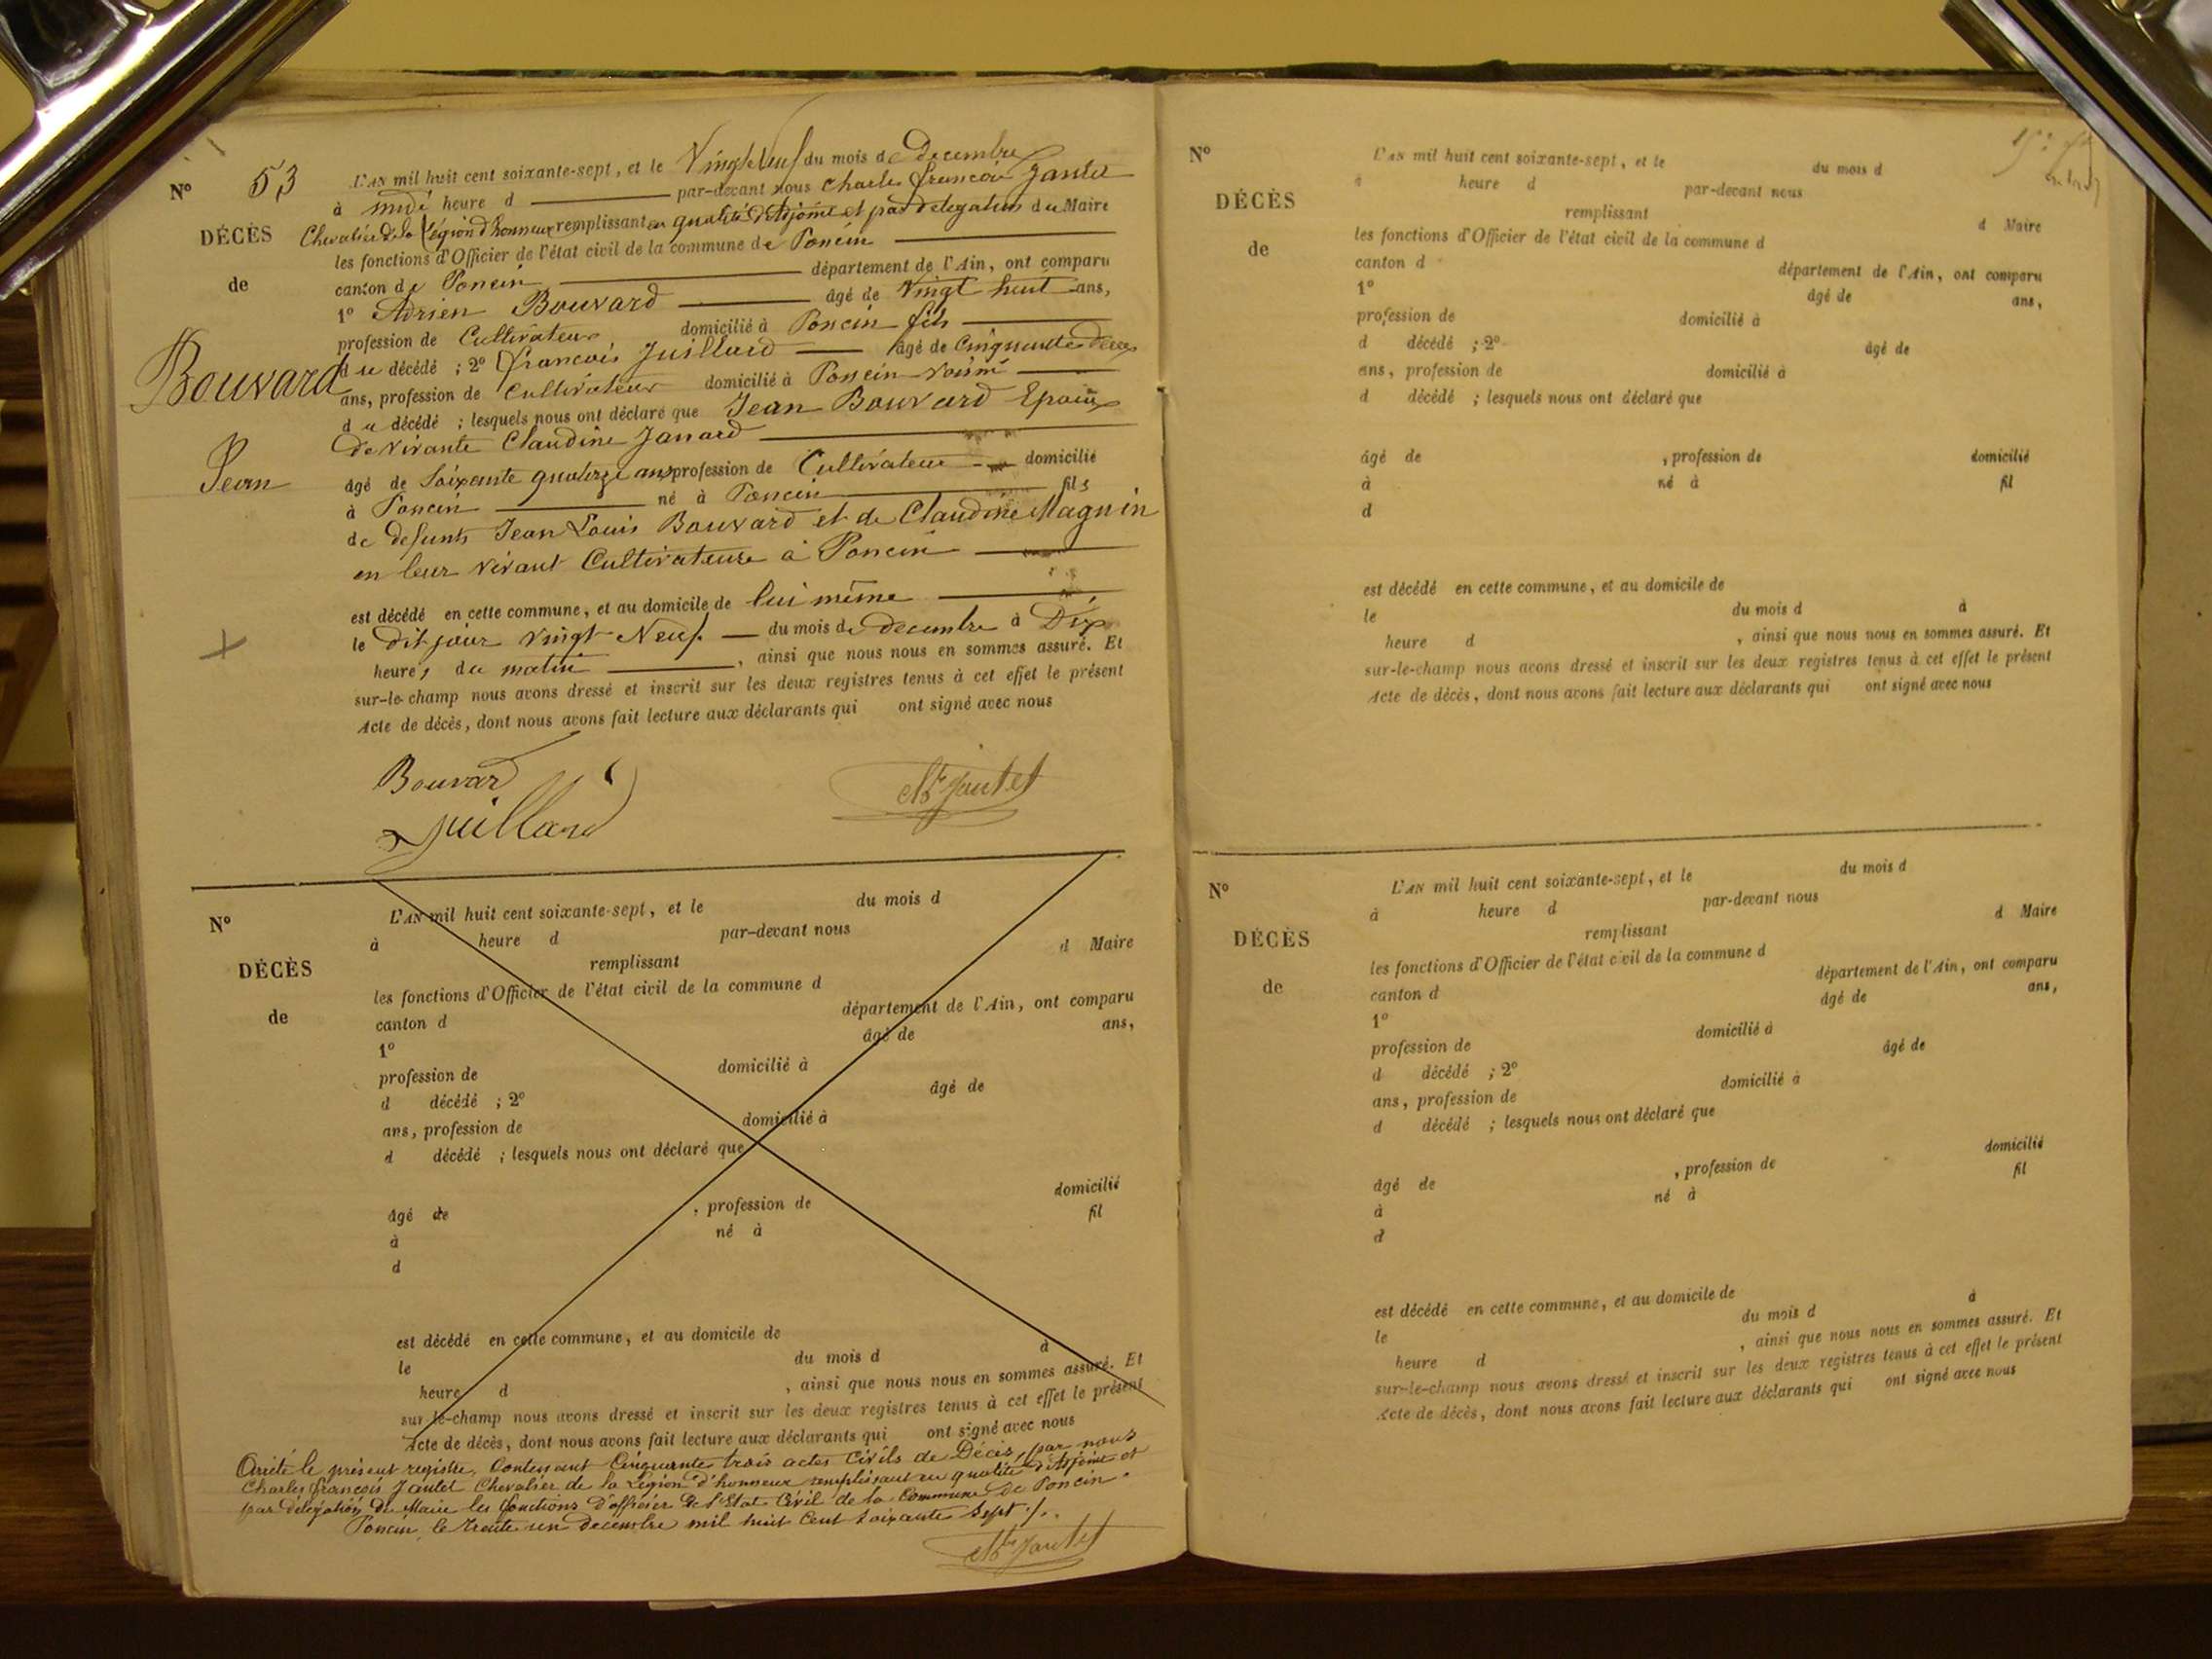 N° 53
DÉCÈS
de
Bouvard
Jean
L'AN mil huit cent soixante-sept, et le Vingt Neuf du mois de Decembre
à midi heure d par-devant nous Charles francois Jantet
Chevalier de la Légion d'honneur remplissant en qualité d'Adjoint et par delegation du Maire
les fonctions d'Officier de l'état civil de la commune de Poncin
canton de Poncin département de l'Ain, ont comparu
1° Adrien Bouvard âgé de Vingt huit ans,
profession de Cultivateur domicilié à Poncin fils
du décédé ; 2° francois Juillard âgé de Cinquante deux
ans, profession de Cultivateur domicilié à Poncin voisin
du décédé ; lesquels nous ont déclaré que Jean Bouvard Epoux
de vivante Claudine Janard
âgé de Soixante quatorze ans profession de Cultivateur domicilié
à Poncin né à Poncin fils
de defunts Jean Louis Bouvard et de Claudine Magnin
en leur vivant Cultivateurs à Poncin
est décédé en cette commune, et au domicile de lui même
le dit jour vingt Neuf du mois de decembre à Dix
heures du matin , ainsi que nous nous en sommes assuré. Et
sur-le-champ nous avons dressé et inscrit sur les deux registres tenus à cet effet le présent
Acte de décès, dont nous avons fait lecture aux déclarants qui ont signé avec nous
Bouvard
Juillard
Jantet
N°
DÉCÈS
de
L'AN mil huit cent soixante-sept, et le du mois d
à heure d par-devant nous
remplissant d Maire
les fonctions d'Officier de l'état civil de la commune d
canton d département de l'Ain, ont comparu
1° âgé de ans,
profession de domicilié à
d décédé ; 2° âgé de
ans, profession de domicilié à
d décédé ; lesquels nous ont déclaré que
âgé de , profession de domicilié
à né à fil
d
est décédé en cette commune, et au domicile de
le du mois d à
heure d , ainsi que nous nous en sommes assuré. Et
sur-le-champ nous avons dressé et inscrit sur les deux registres tenus à cet effet le présent
Acte de décès, dont nous avons fait lecture aux déclarants qui ont signé avec nous
Arrêté le présent registre, Contenant Cinquante trois actes Civils de Décès, par nous
Charles francois Jantet Chevalier de la Légion d'honneur remplissant en qualité d'Adjoint et
par délégation du Maire les fonctions d'officier de l'Etat Civil de la Commune de Poncin.
Poncin, le trente un decembre mil huit Cent Soixante Sept
Jantet
N°
DÉCÈS
de
L'AN mil huit cent soixante-sept, et le du mois d
à heure d par-devant nous
remplissant d Maire
les fonctions d'Officier de l'état civil de la commune d
canton d département de l'Ain, ont comparu
1° âgé de ans,
profession de domicilié à
d décédé ; 2° âgé de
ans, profession de domicilié à
d décédé ; lesquels nous ont déclaré que
âgé de , profession de domicilié
à né à fil
d
est décédé en cette commune, et au domicile de
le du mois d à
heure d , ainsi que nous nous en sommes assuré. Et
sur-le-champ nous avons dressé et inscrit sur les deux registres tenus à cet effet le présent
Acte de décès, dont nous avons fait lecture aux déclarants qui ont signé avec nous
N°
DÉCÈS
de
L'AN mil huit cent soixante-sept, et le du mois d
à heure d par-devant nous
remplissant d Maire
les fonctions d'Officier de l'état civil de la commune d
canton d département de l'Ain, ont comparu
1° âgé de ans,
profession de domicilié à
d décédé ; 2° âgé de
ans, profession de domicilié à
d décédé ; lesquels nous ont déclaré que
âgé de , profession de domicilié
à né à fil
d
est décédé en cette commune, et au domicile de
le du mois d à
heure d , ainsi que nous nous en sommes assuré. Et
sur-le-champ nous avons dressé et inscrit sur les deux registres tenus à cet effet le présent
Acte de décès, dont nous avons fait lecture aux déclarants qui ont signé avec nous